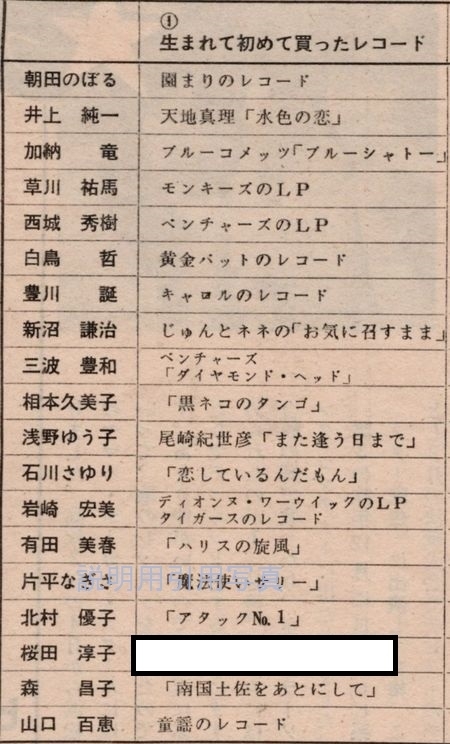 ①
生まれて初めて買ったレコード
朝田のぼる 園まりのレコード
井上 純一 天地真理「水色の恋」
加納 竜 ブルーコメッツ「ブルーシャトー」
草川 祐馬 モンキーズのLP
西城 秀樹 ベンチャーズのLP
白鳥 哲 黄金バットのレコード
豊川 誕 キャロルのレコード
新沼 謙治 じゅんとネネの「お気に召すまま」
三波 豊和 ベンチャーズ
「ダイヤモンド・ヘッド」
相本久美子 「黒ネコのタンゴ」
浅野ゆう子 尾崎紀世彦「また逢う日まで」
石川さゆり 「恋しているんだもん」
岩崎 宏美 ディオンヌ・ワーウイックのLP
タイガースのレコード
有田 美春 「ハリスの旋風」
片平なぎさ 「魔法使いサリー」
説明用引用写真
北村 優子 「アタック№1」
桜田 淳子
森 昌子 「南国土佐をあとにして」
山口 百恵 童謡のレコード